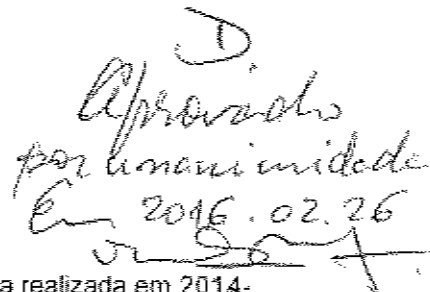 D.
Aprovado
por unanimidade
Em 2016.02.26
a realizada em 2014-